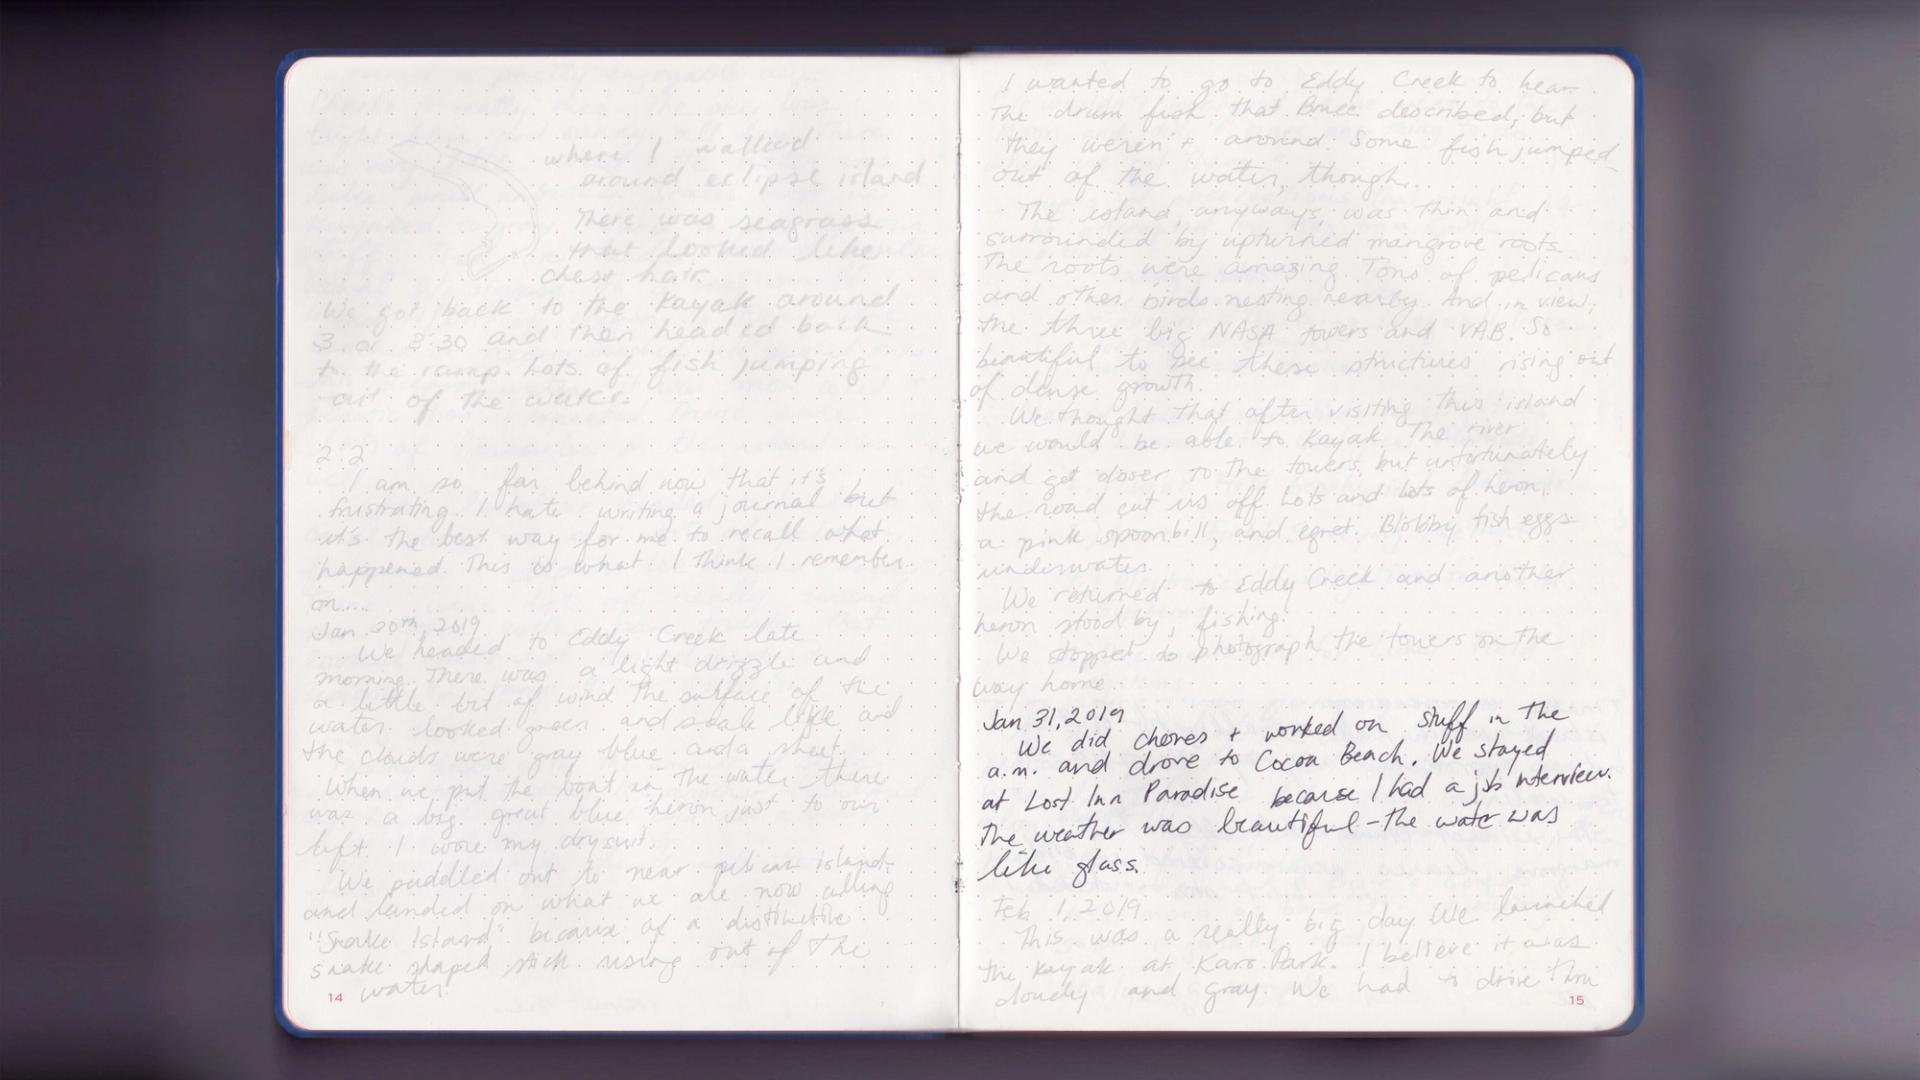 where I walked
around eclipse island
There was seagrass
that looked like
chest hair.
We got back to the kayak around
3 or 3:30 and then headed back
to the ramp. Lots of fish jumping
out of the water.
2.2
I am so far behind now that it's
frustrating. I hate writing a journal but
it's the best way for me to recall what
happened. This is what I think I remember
on....
Jan 30th, 2019
We headed to Eddy Creek late
morning. There was a light drizzle and
a little bit of wind. The surface of the
water looked green and scale like and
the clouds were gray blue and a sheet.
When we put the boat in the water there
was a big great blue heron just to our
left. I wore my drysuit.
We paddled out to near pelican island
and landed on what we are now calling
"Snake Island" because of a distinctive
snake shaped stick rising out of the
water.
14
I wanted to go to Eddy Creek to hear
The drum fish that Bruce described, but
they weren't around. Some fish jumped
out of the water, though.
The island, anyways, was thin and
surrounded by upturned mangrove roots.
The roots were amazing. Tons of pelicans
and other birds nesting nearby. And in view,
the three big NASA towers and VAB. So
beautiful to see these structures rising out
of dense growth.
We thought that after visiting this island
we would be able to kayak The river
and get closer to the towers, but unfortunately
the road cut us off. Lots and lots of heron,
a pink spoonbill, and egret. Blobby fish eggs
underwater.
We returned to Eddy Creek and another
heron stood by, fishing.
We stopped to photograph the towers on the
way home.
Jan 31, 2019
We did chores + worked on stuff in the
a.m. and drove to Cocoa Beach. We stayed
at Lost Inn Paradise because I had a job interview.
The weather was beautiful - the water was
like glass.
Feb 1, 2019
This was a really big day. We launched
the kayak at Kars Park. I believe it was
cloudy and gray. We had to drive thru
15